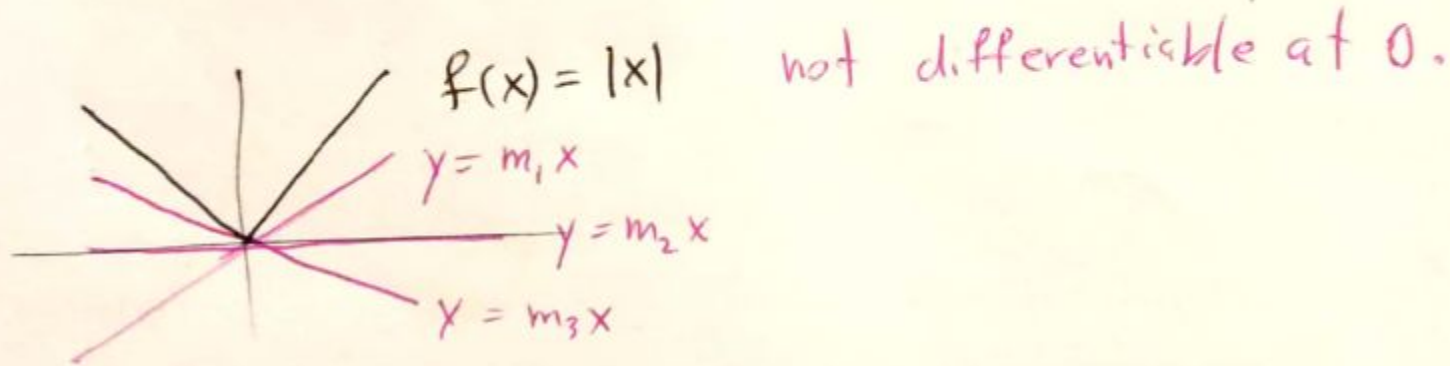 f(x) = |x| not differentiable at 0.
y = m₁ x
y = m₂ x
y = m₃ x